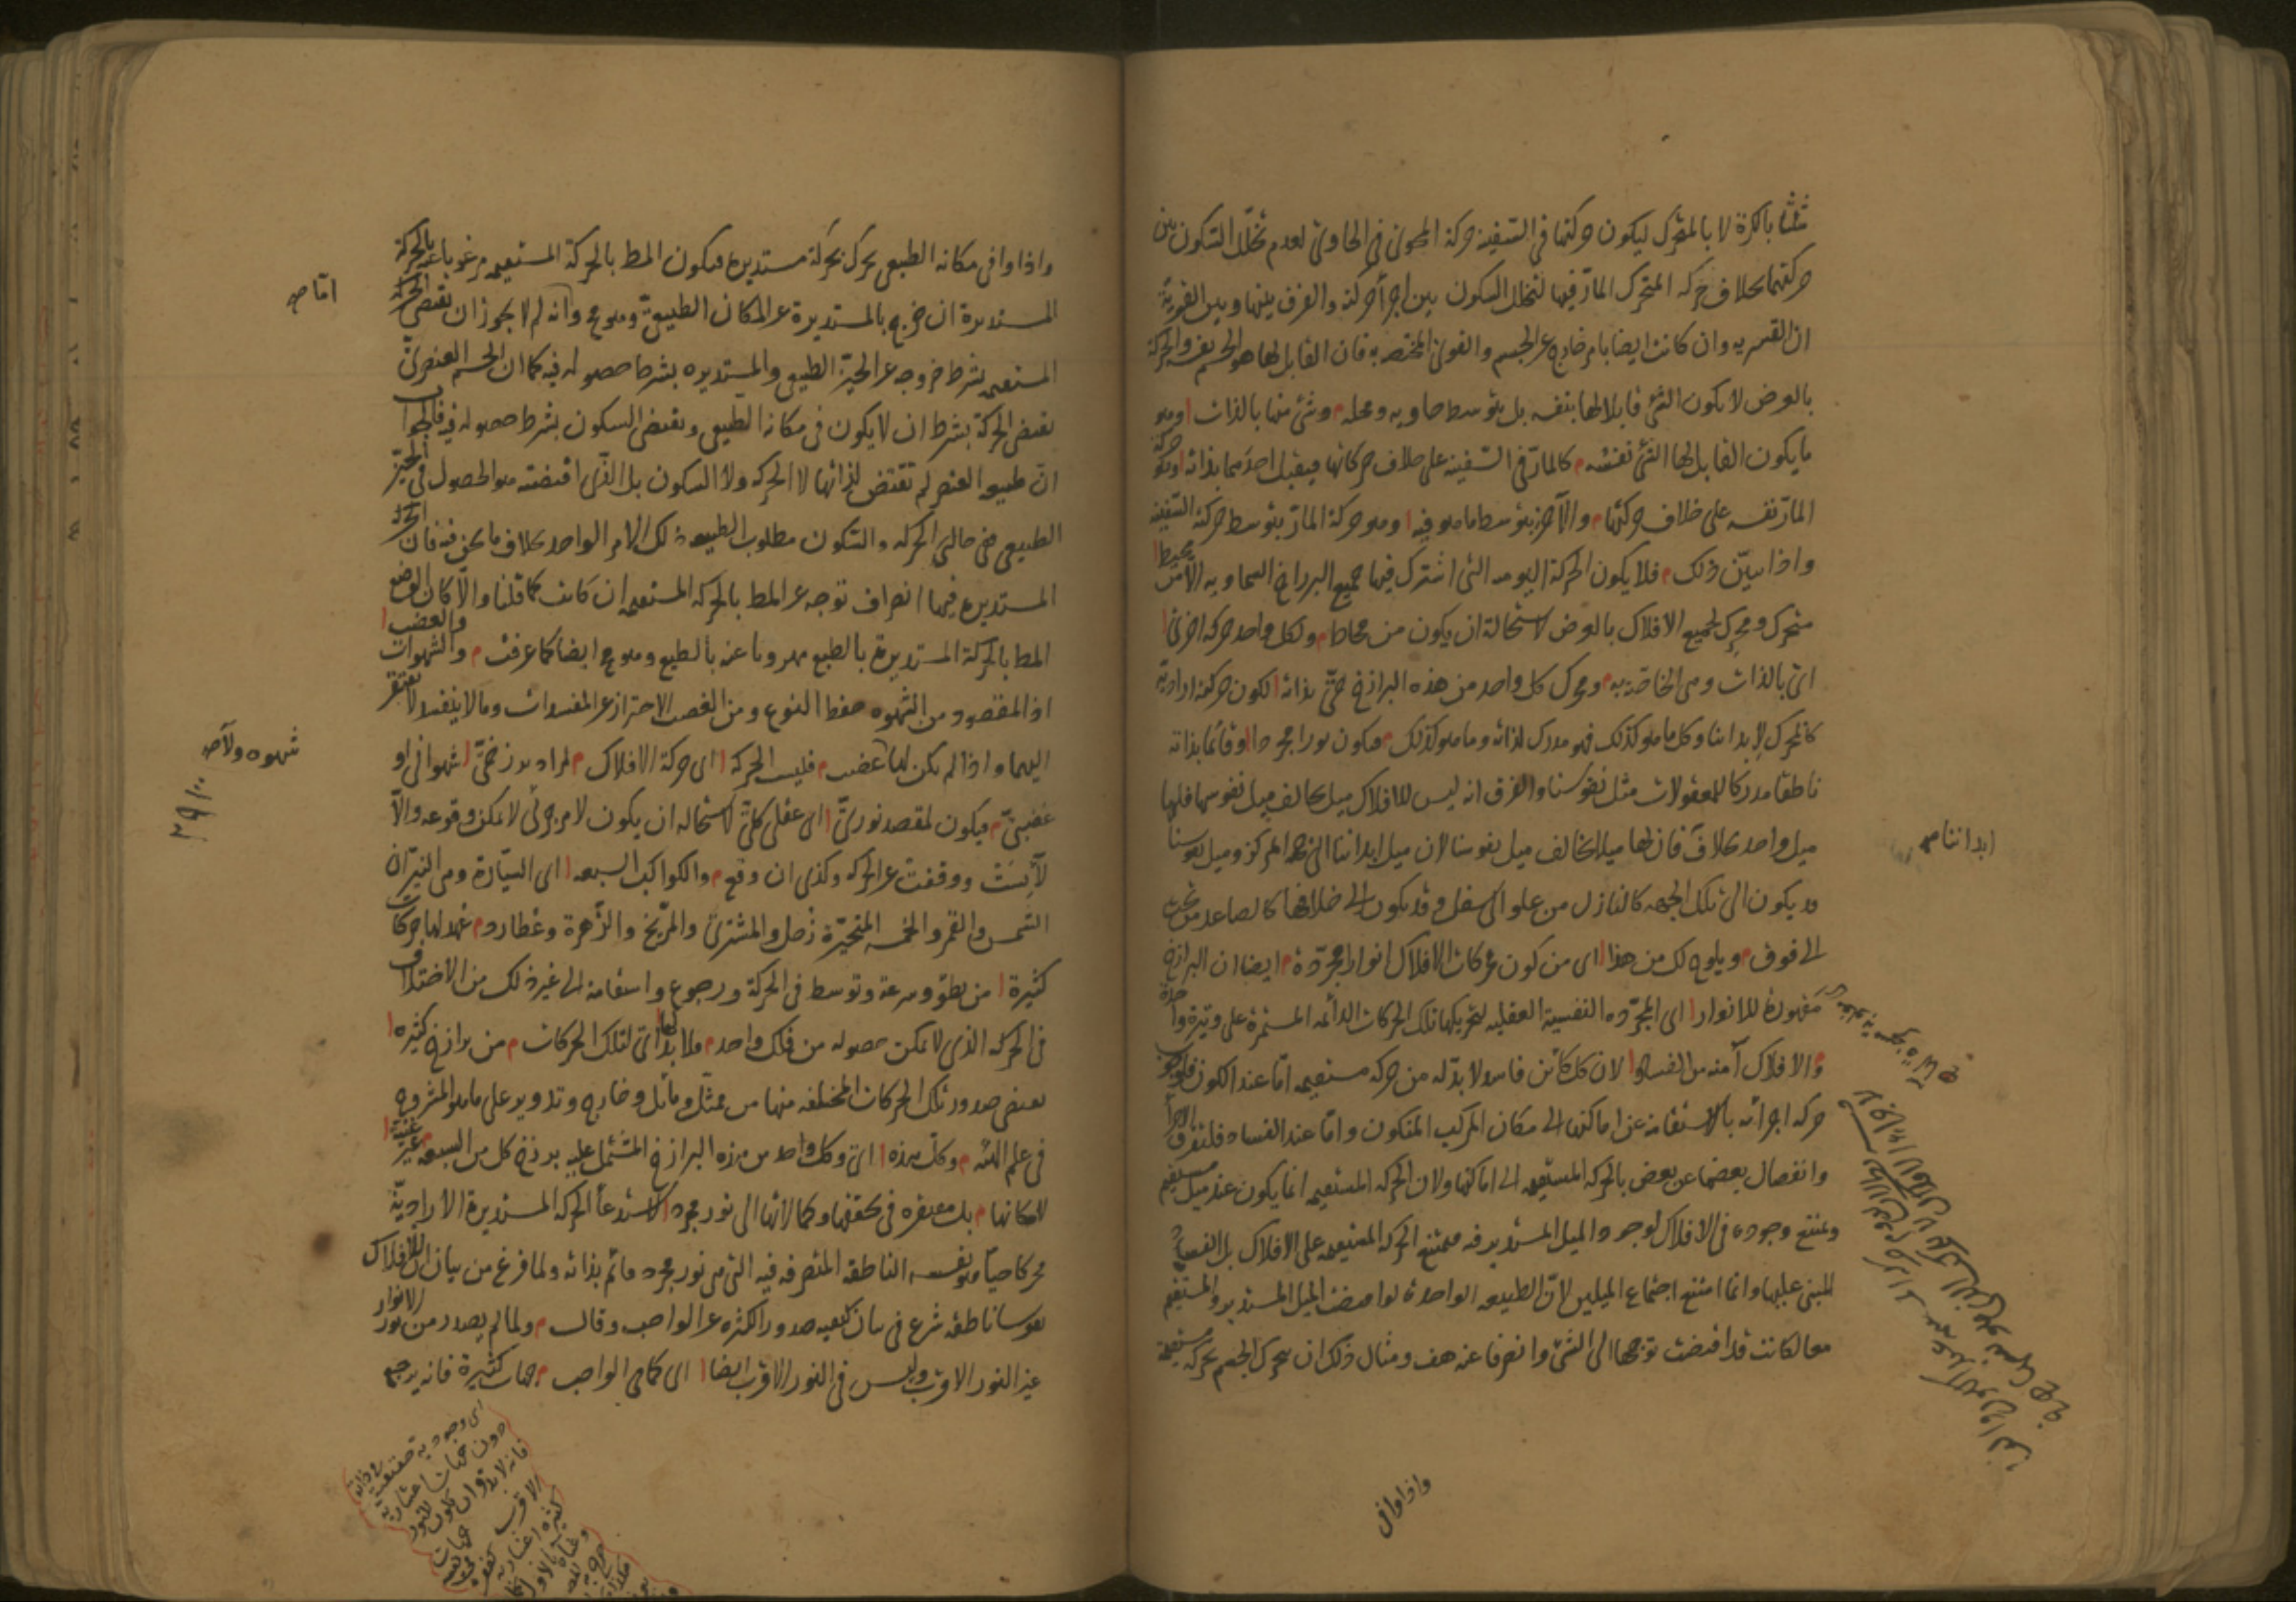 مثلنا بالكرة لا بالمتحرك ليكون حركتها في السفينة حركة المحوى في الحاوى لعدم تخلل السكون بين
حركتهما بخلاف حركة المتحرك المار فيها لتخلل السكون بين اجزأ حركته والفرق بينها وبين القسرية
ان القسريه وان كانت ايضا بامر خارج عن الجسم والقوى المختصه به فان القابل لها هو الجسم نفسه والحركة
بالعرض لا يكون الشئ قابلا لها بنفسه بل بتوسط حاويه ومحله وشئ منها بالذات وهو
ما يكون القابل لها الشئ نفسه كالمار في السفينة على خلاف حركاتها فيقبل احدهما بذاته وهو حركة
المار نفسه على خلاف حركتها والآخر بتوسط ما هو فيه وهو حركة المار بتوسط حركة السفينه
واذا تبين ذلك فلا يكون الحركة اليوميه التى اشترك فيها جميع البرازخ السماويه الا من محيط
متحرك ومحرك لجميع الافلاك بالعرض لاستحالة ان يكون من محاط ولكل واحد حركة اخرى
اى بالذات وهى الخاصة به ومحرك كل واحد من هذه البرازخ حى بذاته لكون حركته ارادية
كالمحرك لابداننا وكل ما هو كذلك فهو مدرك لذاته وما هو كذلك فيكون نورا مجردا وقائما بذاته
ناطقا مدركا للمعقولات مثل نفوسنا والفرق انه ليس للافلاك ميل يخالف ميل نفوسها فلها
ميل واحد بخلاف فان لها ميلا يخالف ميل نفوسنا لان ميل ابداننا الى جهة المركز وميل نفوسنا
قد يكون الى تلك الجهه كالنازل من علو الى سفل وقد يكون الى خلافها كالصاعد من تحت
الى فوق ويلوح لك من هذا اى من كون محركات الافلاك انوارا مجردة ايضا ان البرازخ
مقهورة للانوار اى المجرده النفسية العقليه لتحريكها تلك الحركات الدائمه المستمرة على وتيرة واحدة
والافلاك آمنه من الفساد لان كل كائن فاسد لا بد له من حركه مستقيمه اما عند الكون فلوجوب
حركه اجزائه بالاستقامة عن اماكنها الى مكان المركب المتكون واما عند الفساد فلتفرق الاجزأ
وانفصال بعضها عن بعض بالحركه المستقيمه الى اماكنها ولان الحركه المستقيمه انما يكون عند ميل مستقيم
ويمتنع وجوده فى الافلاك لوجود الميل المستدير فيه فيمتنع الحركه المستقيمه على الافلاك بل الفساد
المبنى عليها وانما امتنع اجتماع الميلين لان الطبيعه الواحدة لو اقتضت الميل المستدير والمستقيم
معا لكانت قد اقتضت توجهها الى الشئ وانصرفا عنه هف ومثال ذلك ان يتحرك الجسم بحركه مستقيمة
واذا وافى
ابداننا صح
واذا وافى مكانه الطبيعى تحرك بحركة مستديره فيكون المط بالحركة المستقيمه مرغوبا عنه بالحركة
المستديرة ان خرج بالمستديرة عن المكان الطبيعى وهو مح وانه لم لا يجوز ان تقتضى الحركة
المستقيمه بشرط خروجه عن الحيز الطبيعى والمستديره بشرط حصوله فيه كما ان الجسم العنصرى
يقتضى الحركة بشرط ان لا يكون فى مكانه الطبيعى ويقتضى السكون بشرط حصوله فيه فالجواب
ان طبيعه العنصر لم تقتض لذاتها لا الحركه ولا السكون بل الذى اقتضته هو الحصول فى الحيز
الطبيعى ففى حالتى الحركه والسكون مطلوب الطبيعه ذلك الامر الواحد بخلاف ما نحن فيه فان الحركة
المستديره فيها انصراف توجه عن المط بالحركه المستقيمه ان كانت كما قلنا والا كان الوضع
المط بالحركة المستديرة بالطبع مهروبا عنه بالطبع وهو مح ايضا كما عرفت والشهوات والغضب
اذ المقصود من الشهوه حفظ النوع ومن الغضب الاحتراز عن المفسدات وما لا ينفسد لا يفتقر
اليهما واذا لم يكن لها غضب فليست الحركة اى حركة الافلاك لمراد برزخى شهوانى او
غضبى فيكون لمقصد نورى اى عقلى كلى لاستحاله ان يكون لامر جزئى لا يمكن وقوعه والا
لأيست ووقفت عن الحركه وكذى ان وقع والكواكب السبعه اى السيارة وهى النيران
الشمس والقمر والخمسه المتحيرة زحل والمشترى والمريخ والزهرة وعطارد شهد لها حركات
كثيرة من بطؤ وسرعة وتوسط فى الحركة ورجوع واستقامة الى غير ذلك من الاختلاف
فى الحركه الذى لا يمكن حصوله من فلك واحد فلا بد لها اى لتلك الحركات من برازخ كثيره
يقتضى صدور تلك الحركات المختلفه منها من ممثل ومائل وخارج وتدوير على ما هو المشروح
فى علم الهيئه وكل هذه اى وكل واحد من هذه البرازخ المشتمل عليه برزخ كل من السبعه غير غنية
لامكانها بل مفتقره فى تحققها وكمالاتها الى نور مجرد لاستدعأ الحركه المستديرة الارادية
محركا حيا هو نفسه الناطقه المتصرفه فيه التى هى نور مجرد قائم بذاته ولما فرغ من بيان ان للافلاك
نفوسا ناطقه شرع فى بيان كيفيه صدور الكثره عن الواجب وقال ولما لم يصدر من نور الانوار
غير النور الاقرب وليس فى النور الاقرب ايضا اى كما فى الواجب جهات كثيرة فانه يرجع
اما صح
شهوه ولا صح
اى وجوديه حقيقيه فى ذاته
دون جهات اعتباريه
فانه لا بد وان يكون للنور
الاقرب جهات
كثيره اعتباريه